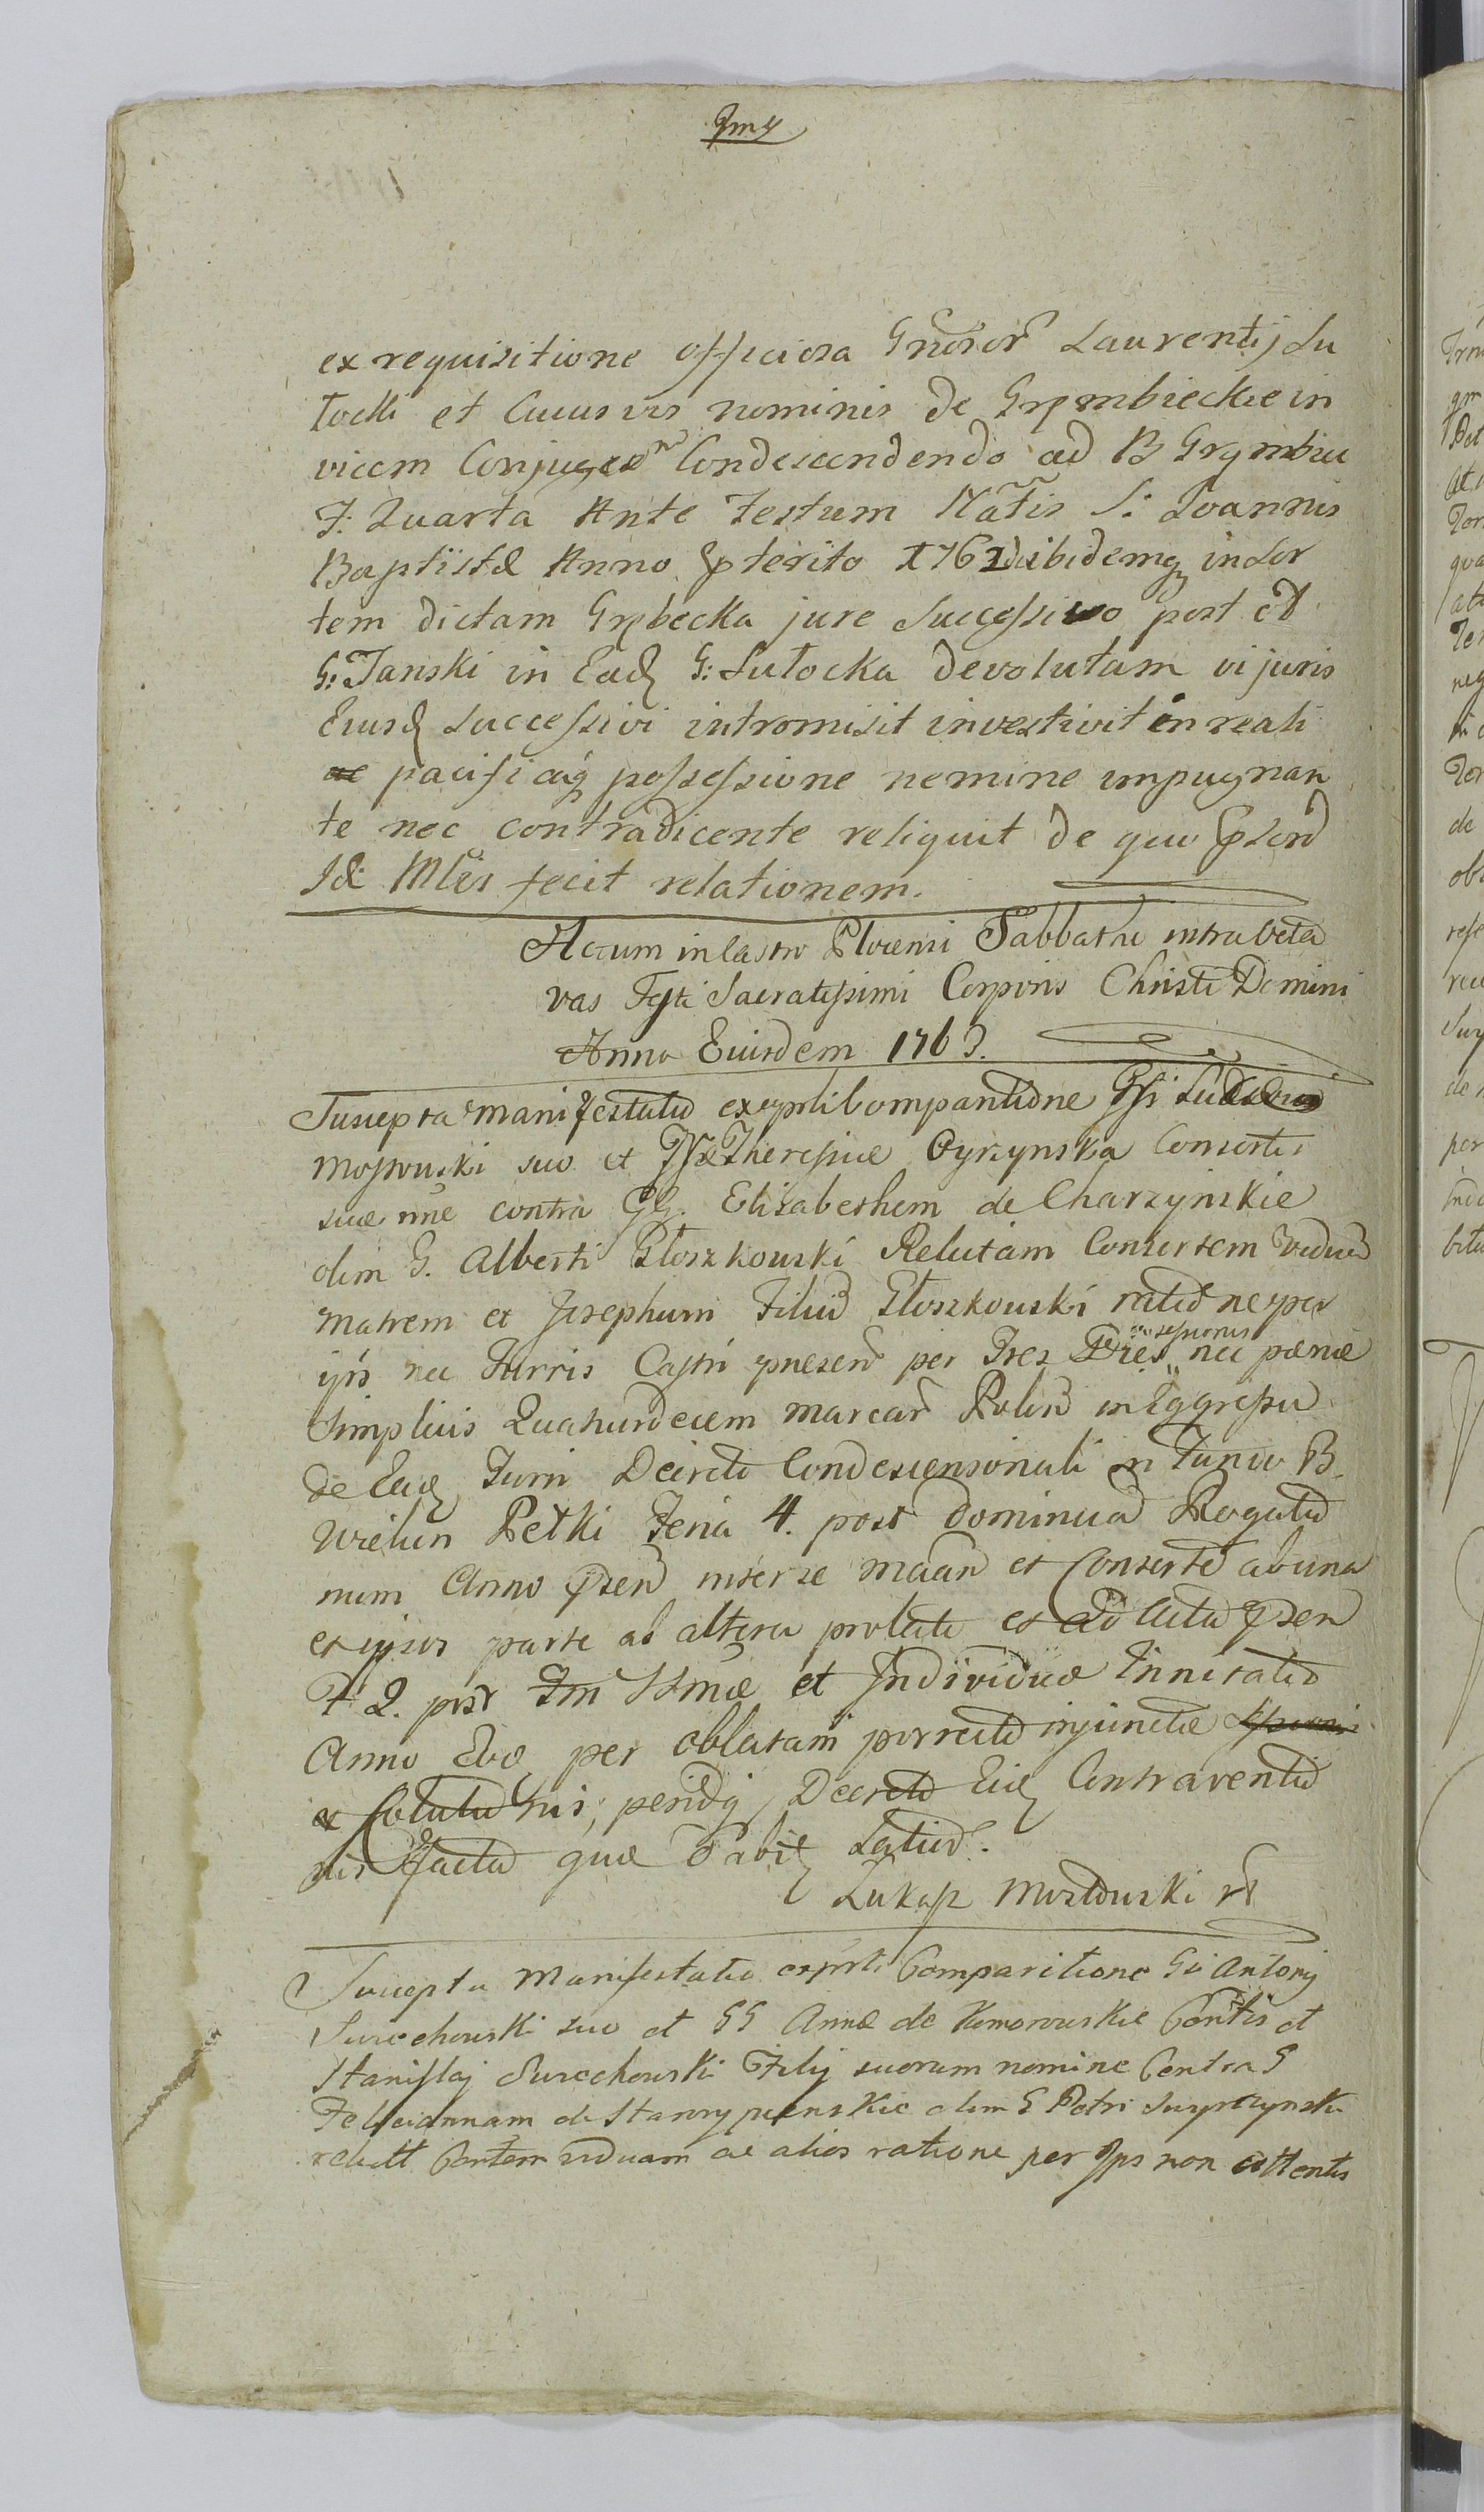 ex requisitione officiosa Gnosor Laurentij Lu
tocki et Cuiusvis nominis de Grembieckie in
vicem Conjugex Condescendendo ad B Grembice
F: Quarta Ante Festum Natis S: Joannis
Baptistæ Anno pterito 1762 ibidemq in Sor
tem dictam Grębecka jure Successivo post
G: Janski in Ead G: Lutocka devolutam vi juris
Eiusd Successivi intromisit investivit in reali
ac pacificaq possessione nemine impugnan
te nec contradicente reliquit de quo psend
Id Mlis fecit relationem.
Actum in Castro Plocensi Sabbatho intra Octa
vas Festi Sacratissimi Corporis Christi Domini
Anno Eiusdem 1763.
Suscepta manifestatio ex psli Compantione
Mostouski suo et Theresiæ Cyrzynska Consortis
suæ nne contra GG. Elisabethem de Charzynskie
olim G. Alberti Kłoszkouski Relictam Consortem viduam
matrem et Josephum Filium Kłoszkouski ratione per
ips nec Turris Castri presend per Tres Dies nec pænæ
Simplicis Quatuordecem marcar Polon in Eggressu
de Ead Turri Decreto Condescensionali in Fundo B
Wielun Petki Feria 4. post Dominica Rogatio
num Anno psend inter se maan et Consorte ab una
et ipsos parte ab altera prolato et ad Acta psen
F 2. post Fm Sstmæ et Individuæ Trinitatis
Anno Eod per oblatam porrecto injunctæ
nis, perindq Decreto Eid Contraventio
nis facta quæ dabit Latius.
Łukasz Mostouski
Suscepta Manifestatio ex psli Comparitione Gi Antonj
Surechouski suo et GG Annæ de Komorouskie Contis et
Stanislaj Surechouski Filij suorum nomine Contra G
Feliciannam de Staroypienskie olim G Petri
relict Contem viduam ac alios ratione per Ips non attentis